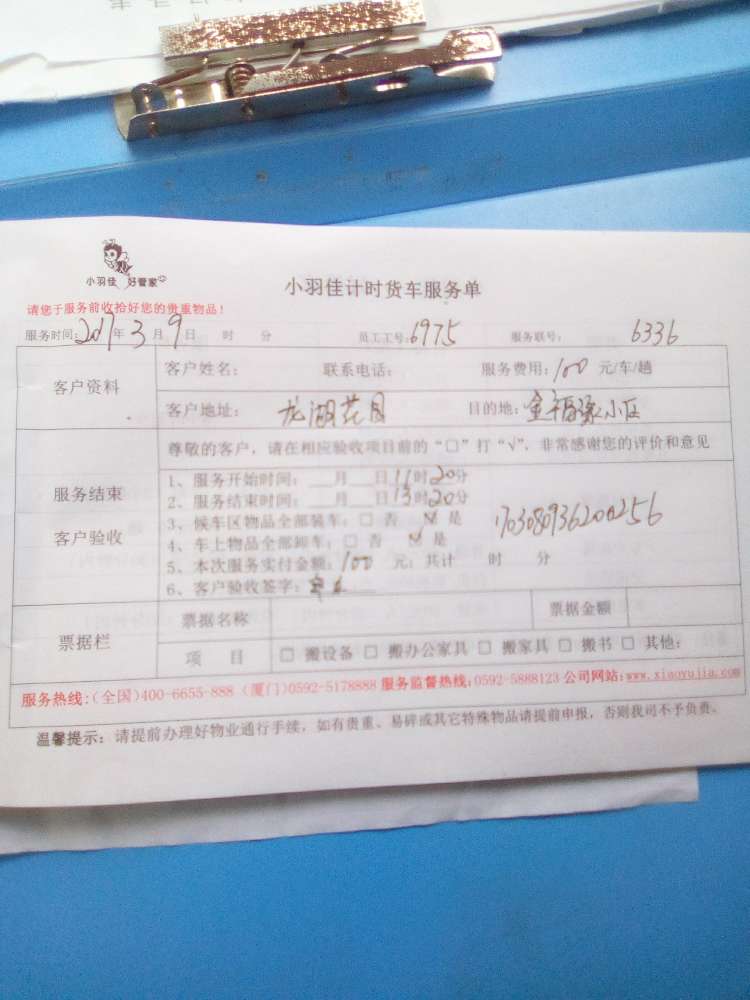 小羽佳 好管家
小羽佳计时货车服务单
请您于服务前收拾好您的贵重物品！
服务时间：2017年3月9日 时 分 员工工号：6975 服务联号： 6336
客户资料
客户姓名： 联系电话： 服务费用：100 元/车/趟
客户地址： 龙湖花园 目的地：金福缘小区
服务结束
客户验收
尊敬的客户，请在相应验收项目前的“□”打“√”，非常感谢您的评价和意见
1、服务开始时间：__月__日11时20分
2、服务结束时间：__月__日13时20分
3、候车区物品全部装车：□ 否 ☑ 是
4、车上物品全部卸车：□ 否 ☑ 是
1703080936200256
5、本次服务实付金额：100 元；共计 时 分
6、客户验收签字：
票据栏
票据名称 票据金额
项 目 □ 搬设备 □ 搬办公家具 □ 搬家具 □ 搬书 □ 其他：
服务热线：（全国）400-6655-888（厦门）0592-5178888 服务监督热线：0592-5888123 公司网站：www.xiaoyujia.com
温馨提示：请提前办理好物业通行手续，如有贵重、易碎或其它特殊物品请提前申报，否则我司不予负责。